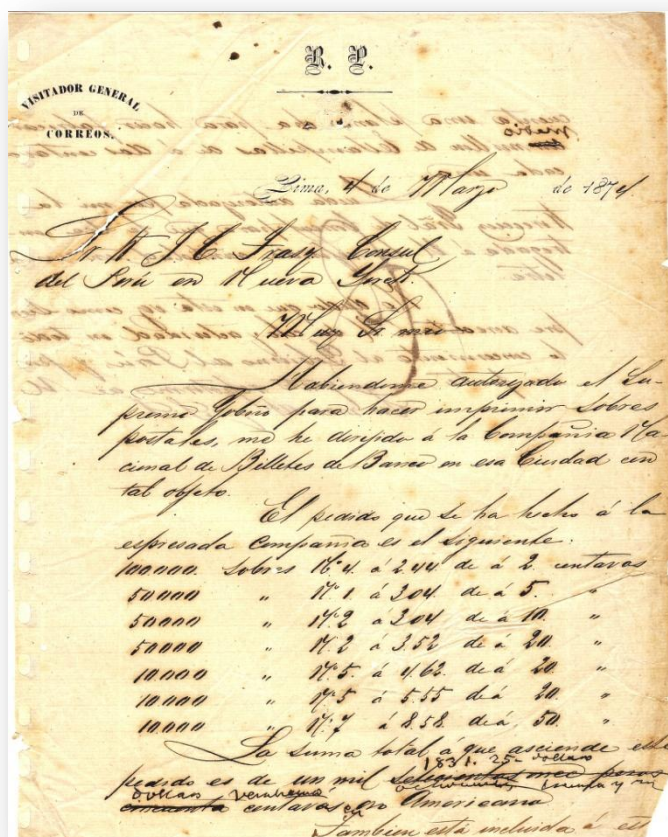 R. P.
VISITADOR GENERAL
DE
CORREOS.
Lima, 4 de Marzo de 1874
Sr. N J C Tracy Consul
del Perú en Nueva York.
Muy Sr. mio
Habiendome autorizado el Su-
premo Gobno para hacer imprimir Sobres
postales, me he dirijido á la Compañia Na-
cional de Billetes de Banco en esa Ciudad con
tal objeto.
El pedido que se ha hecho á la
espresada Compañia es el siguiente:
100,000. Sobres Nº 4. á 2.44 de á 2. centavos
50,000 " Nº 1 á 3.04. de á 5. "
50,000 " Nº 2 á 3.04 de á 10. "
50,000 " Nº 2 á 3.52 de á 20. "
10,000 " Nº 5. á 4.62. de á 20. "
10,000 " Nº 5 á 5.55 de á 20. "
10,000 " Nº 7 á 8.58. de á 50. "
La suma total á que asciende este
1831.25 dollars
pedido es de un mil setecientos once pesos
dollars veinticinco ochocientos treinta y un
cincuenta centavos en oro Americano
Tambien está incluida á es